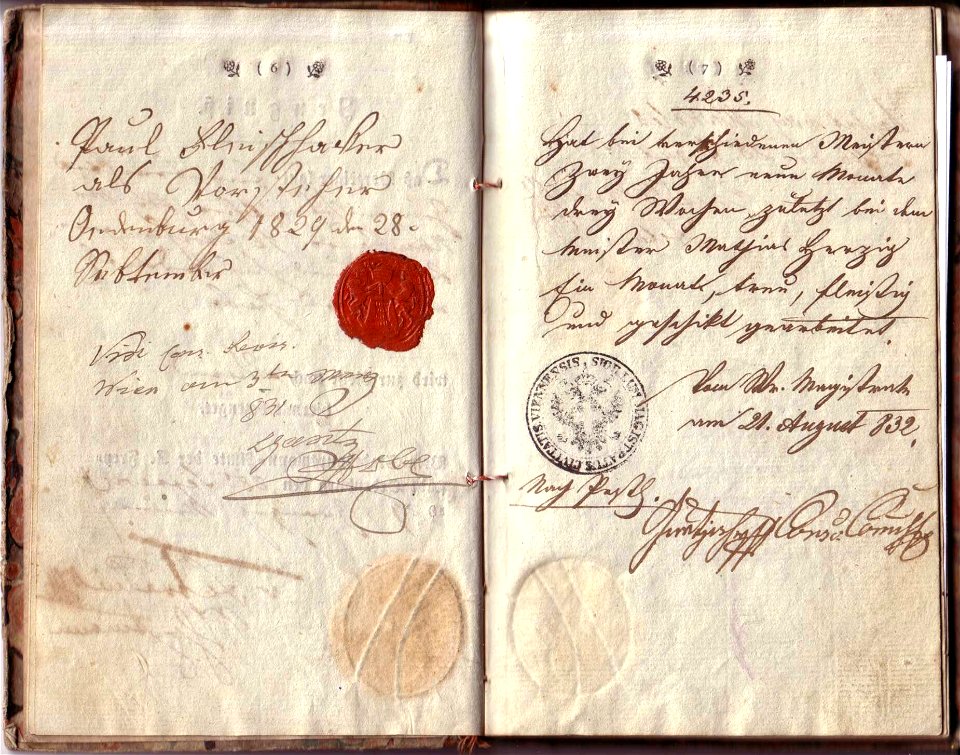 (6)
Paul Fleischhacker
als Vorsteher
Oedenburg 1829 den 28.
September
Vidi
Wien am 3ten
831
(7)
4235.
Hat bei verschiedenen Meistern
Zwey Jahre neun Monate
drey Wochen, zuletzt bei dem
Meister Mathias Herzig
Ein Monat, treu, fleißig
und geschikt gearbeitet.
Vom Wr. Magistrate
am 21. August 832.
SIGILLUM MAGISTRATUS CIVITATIS VIENNENSIS
Nach Pesth.